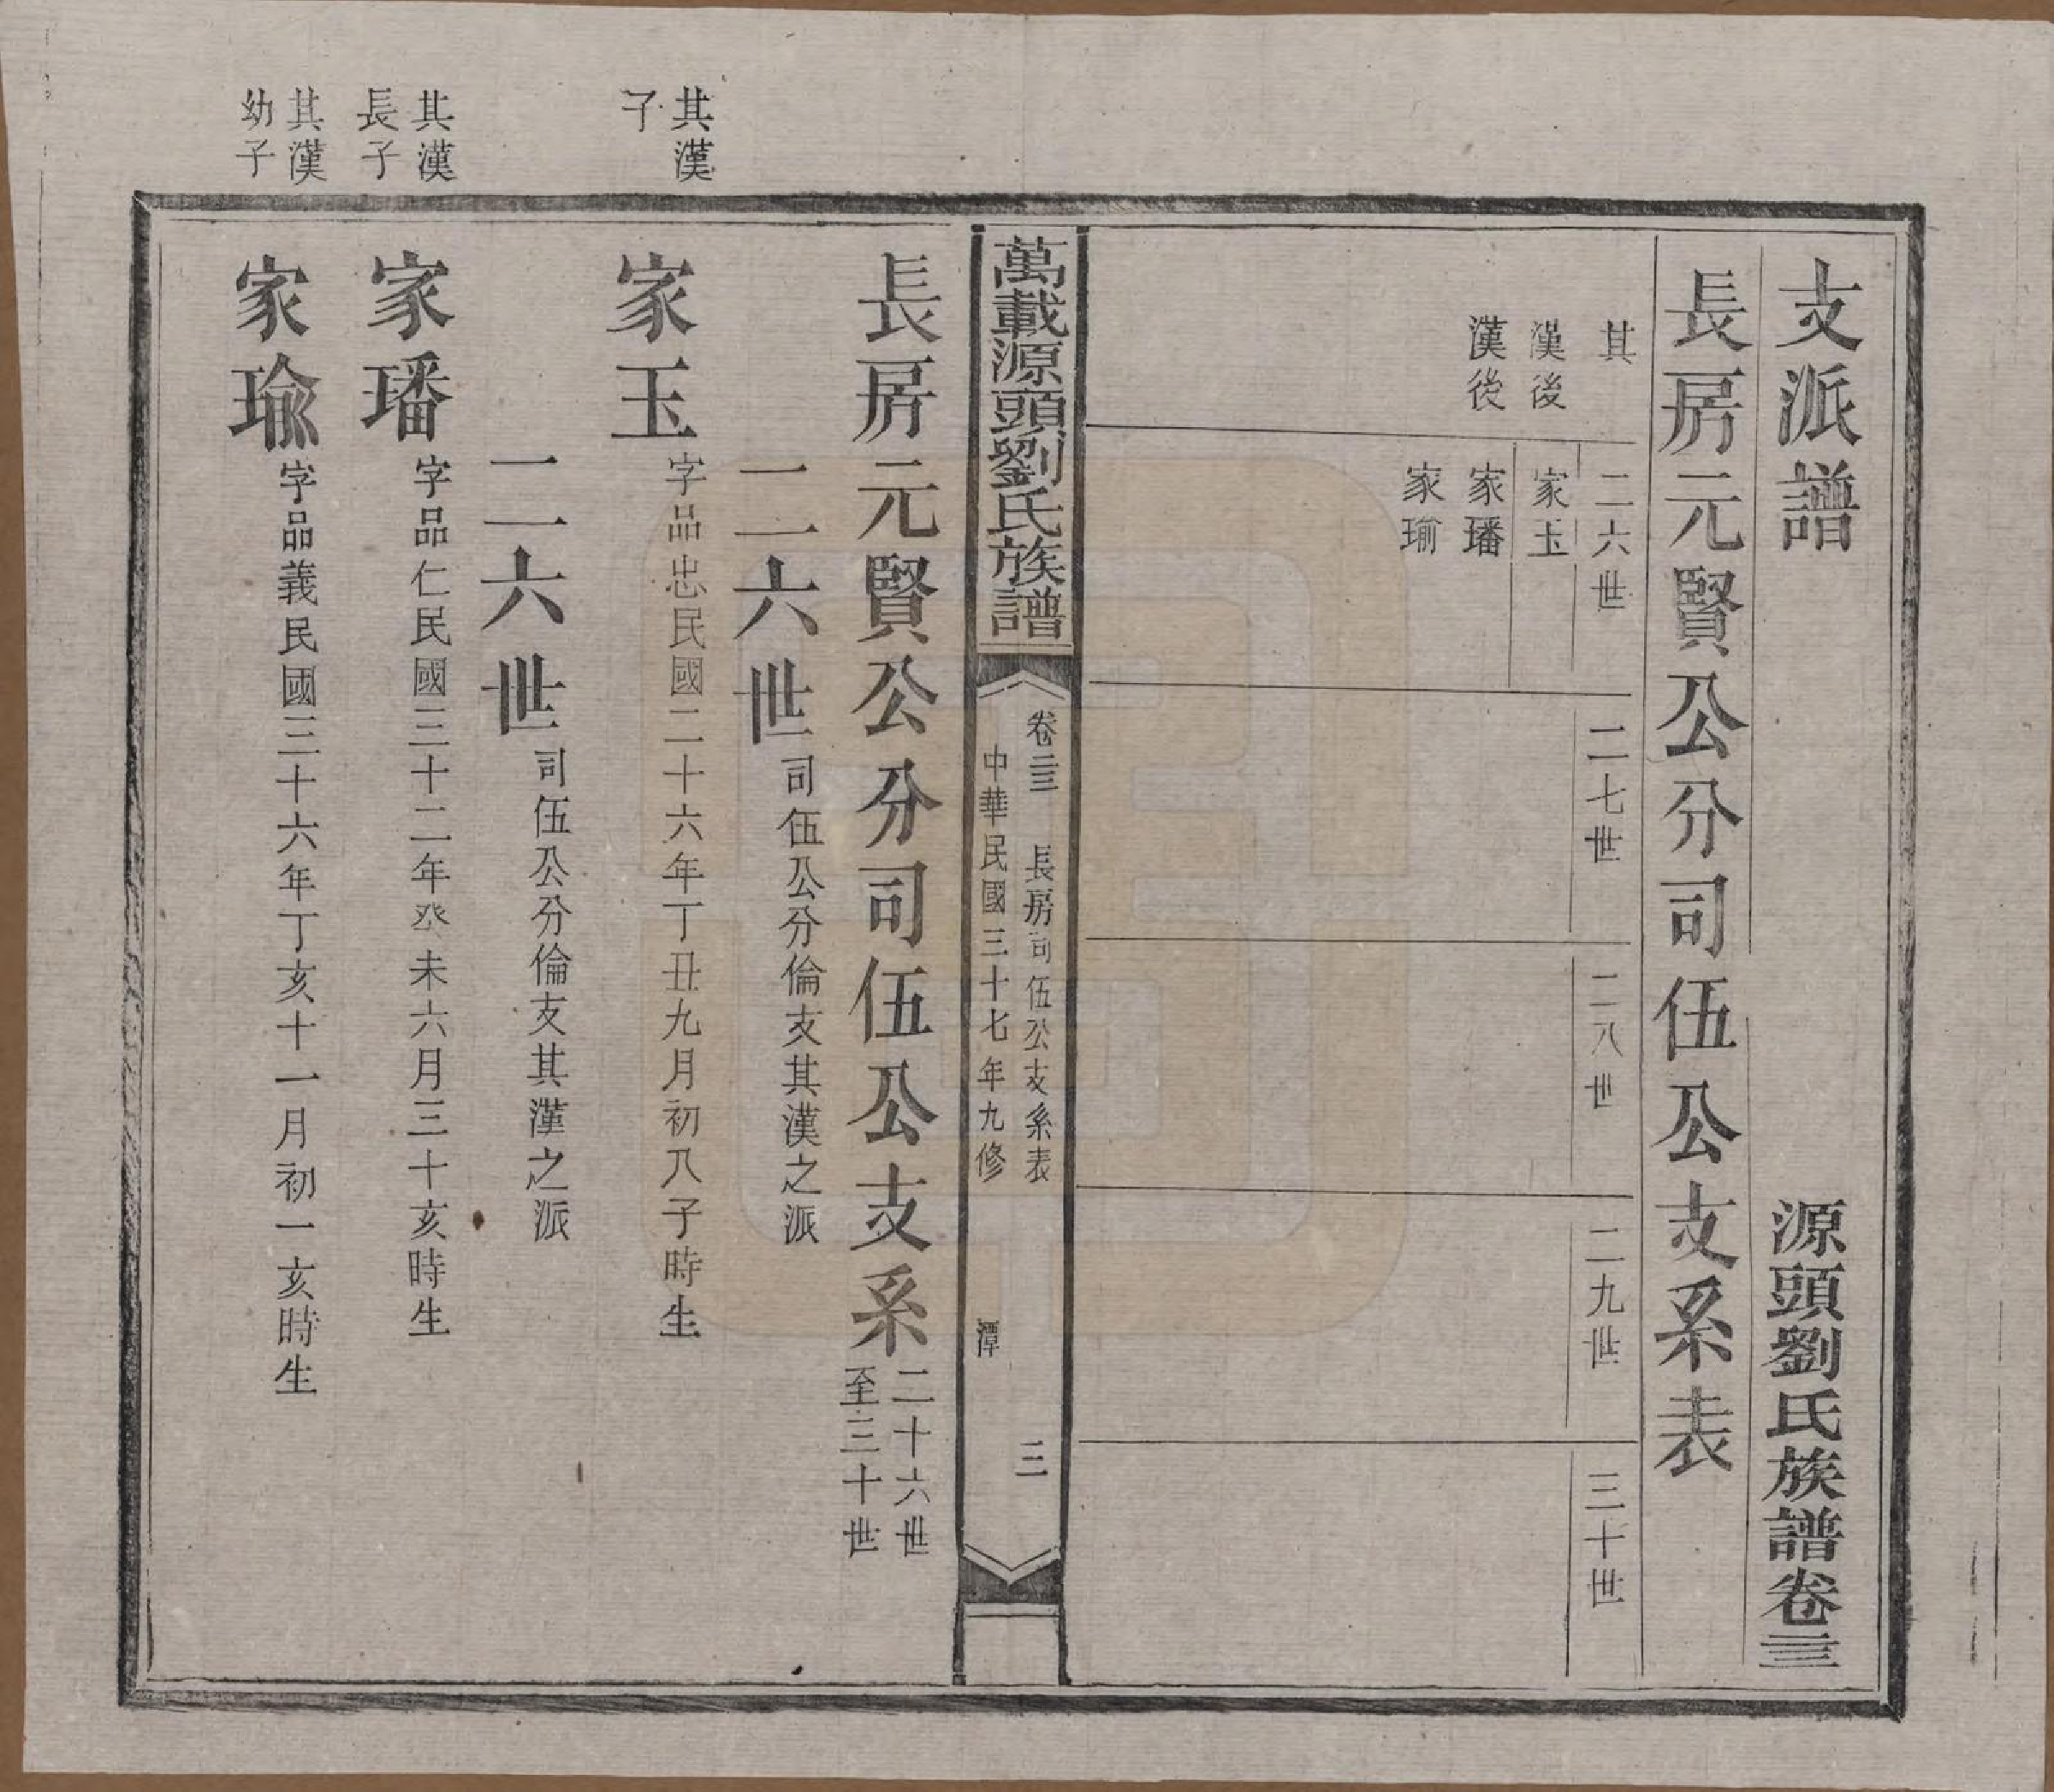 支派譜　源頭劉氏族譜卷三
長房元賢公分司伍公支系表
二六世
二七世
二八世
二九世
三十世
其
漢後
漢後
家玉
家璠
家瑜
萬載源頭劉氏族譜
卷三　長房司伍公支系表　三
中華民國三十七年九修　潭
長房元賢公分司伍公支系
二十六世
至三十世
二六世　司伍公分倫支其漢之派
其漢
子
家玉　字品忠民國二十六年丁丑九月初八子時生
二六世　司伍公分倫支其漢之派
其漢
長子
家璠　字品仁民國三十二年癸未六月三十亥時生
其漢
幼子
家瑜　字品義民國三十六年丁亥十一月初一亥時生